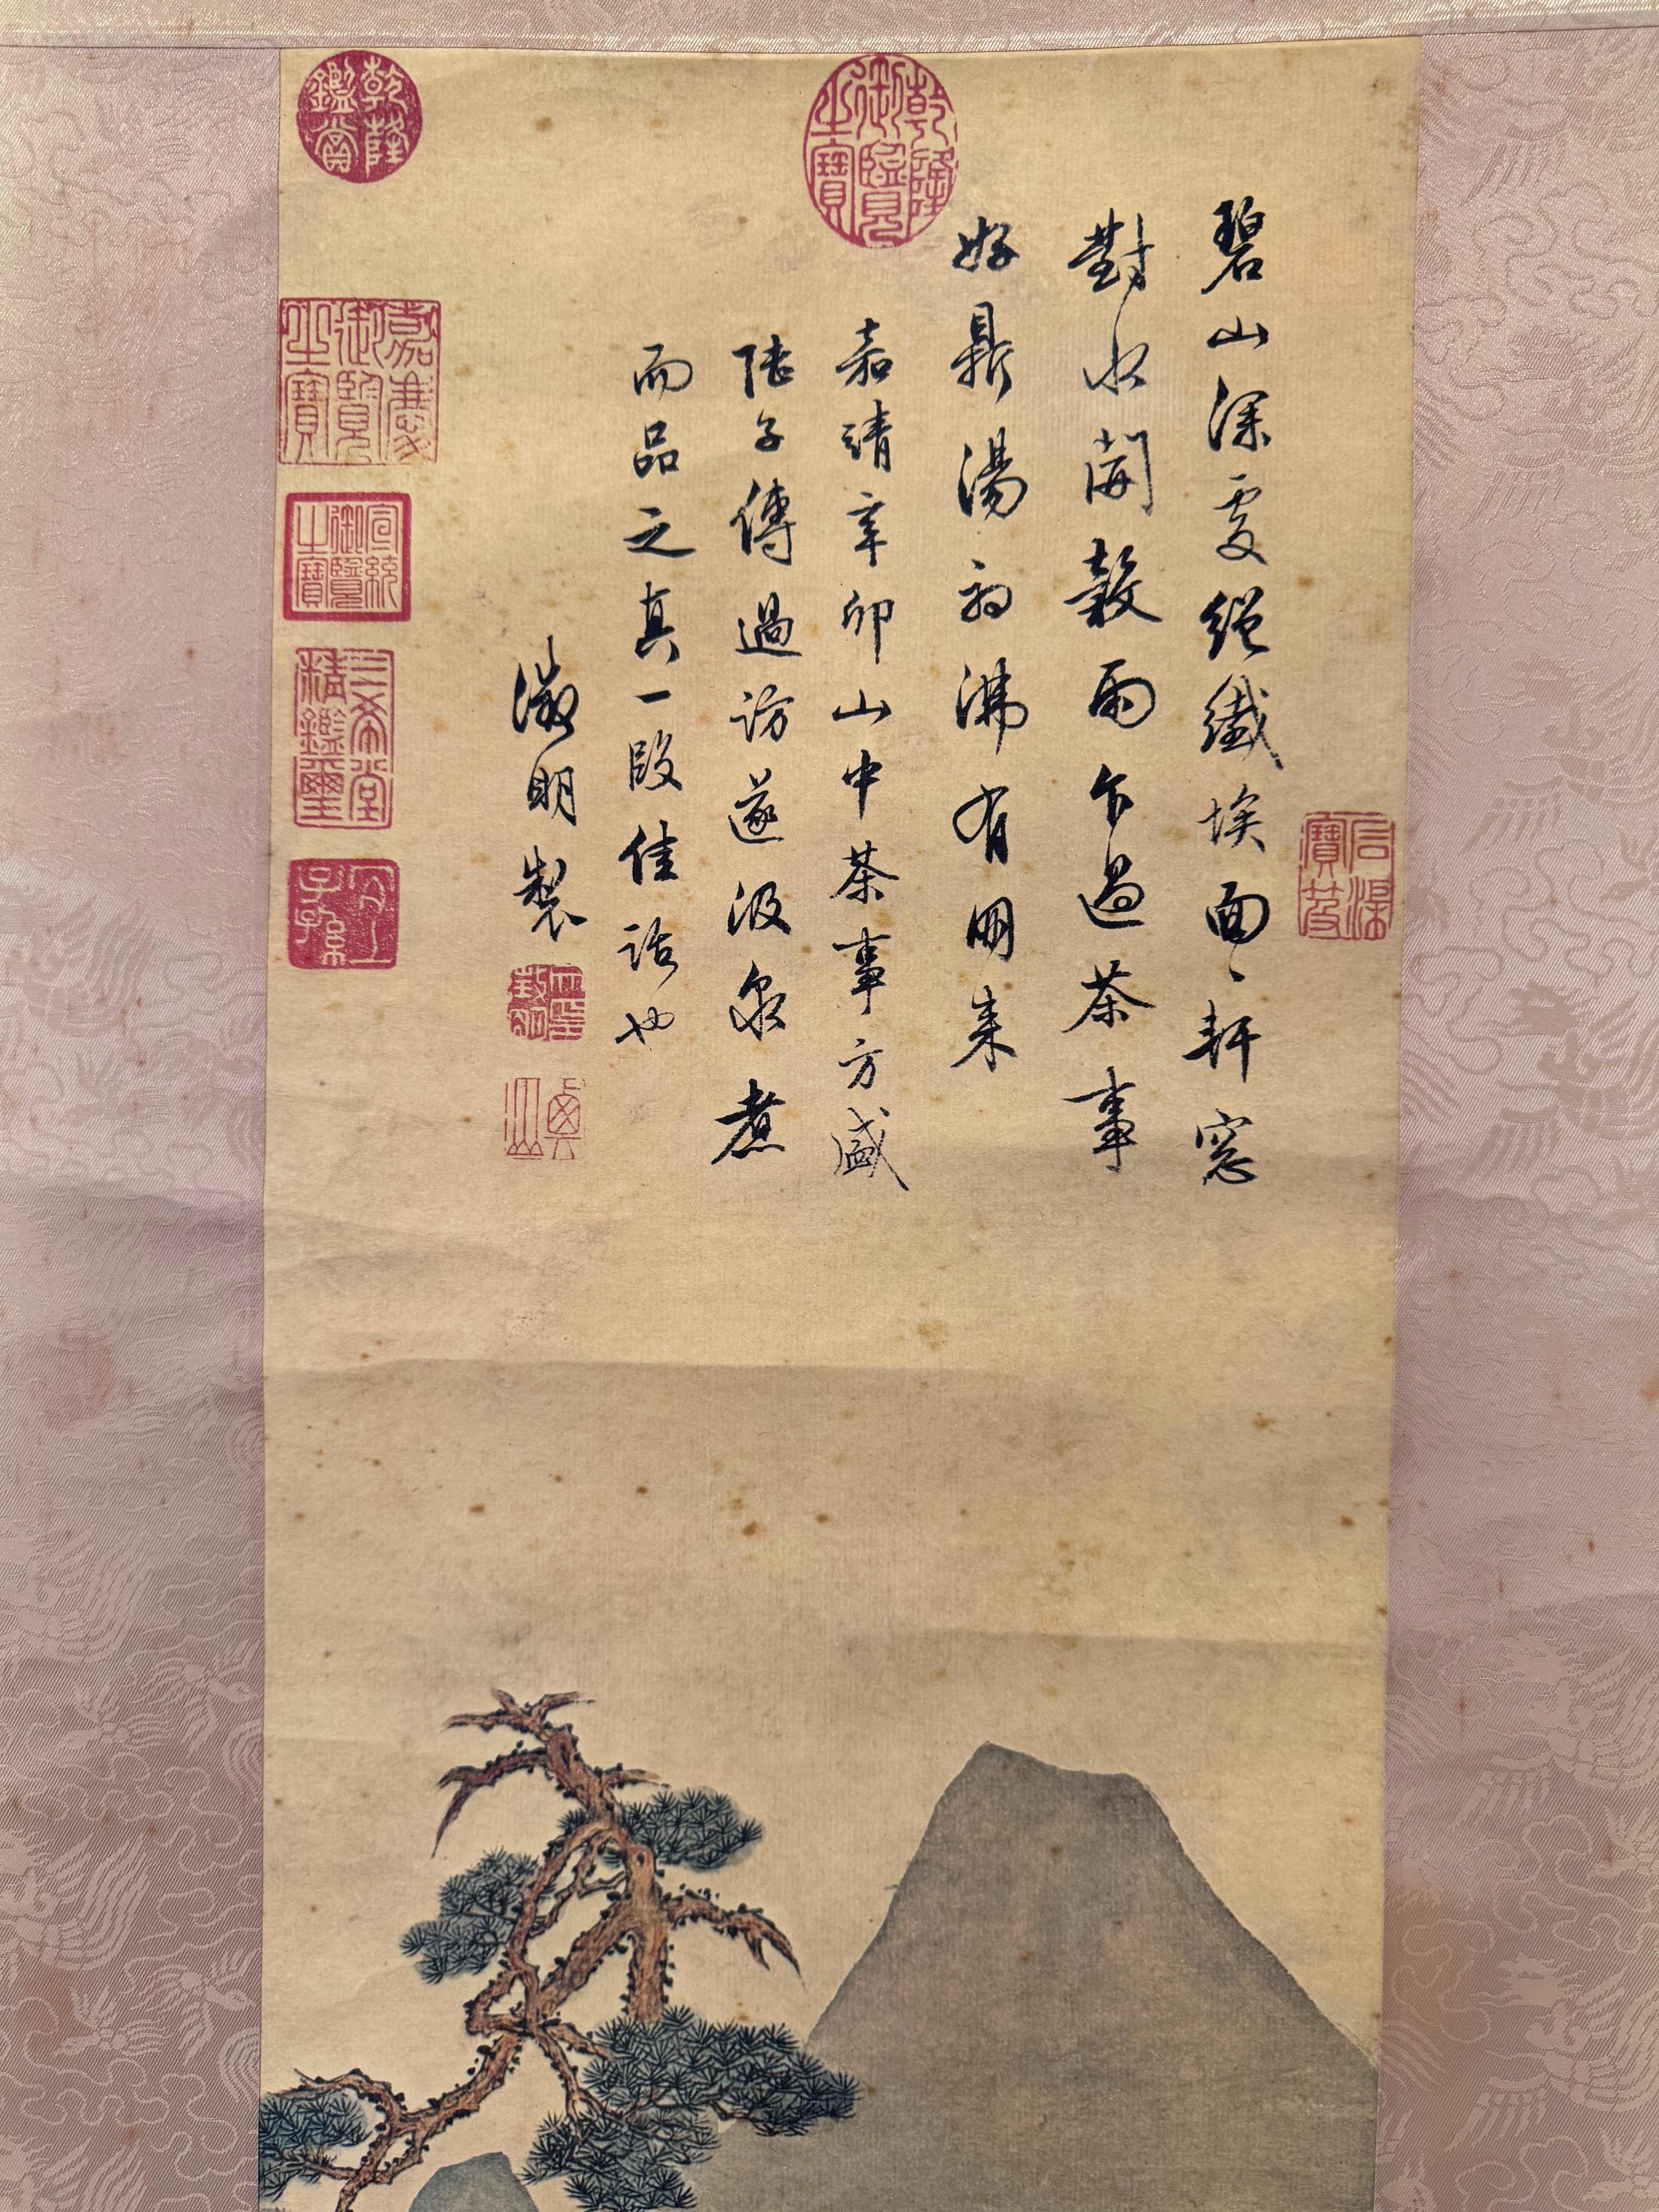 石渠寶笈
碧山深處絕纖埃面〻軒窓
對水開穀雨乍過茶事
好鼎湯初沸有朋来
乾隆御覽之寶
嘉靖辛卯山中茶事方盛
陸子傳過訪遂汲泉煮
而品之真一段佳話也
徵明製
乾隆鑑賞
嘉慶御覽之寶
宣統御覽之寶
三希堂精鑑璽
宜子孫